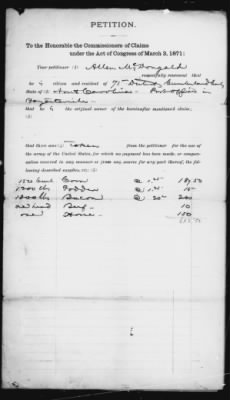 PETITION.
To the Honorable the Commissioners of Claims
under the Act of Congress of March 3, 1871:
Your petitioner (1) Allen McDougald
respectfully represent that
he (2) a citizen and resident of 71st District Cumberland County
State of (3) North Carolina. Post office in
Fayetteville.
that he (4) the original owner of the hereinafter mentioned claim;
that there was (5) taken from the petitioner for the use of
the army of the United States, for which no payment has been made, or compensation
received in any manner or from any source for any part thereof, the following
described supplies, viz: (6)
Corn @
1200 lbs Fodder @ 15
1200 lbs Bacon @ 20c 240
one head Beef - 10
one Horse - 150